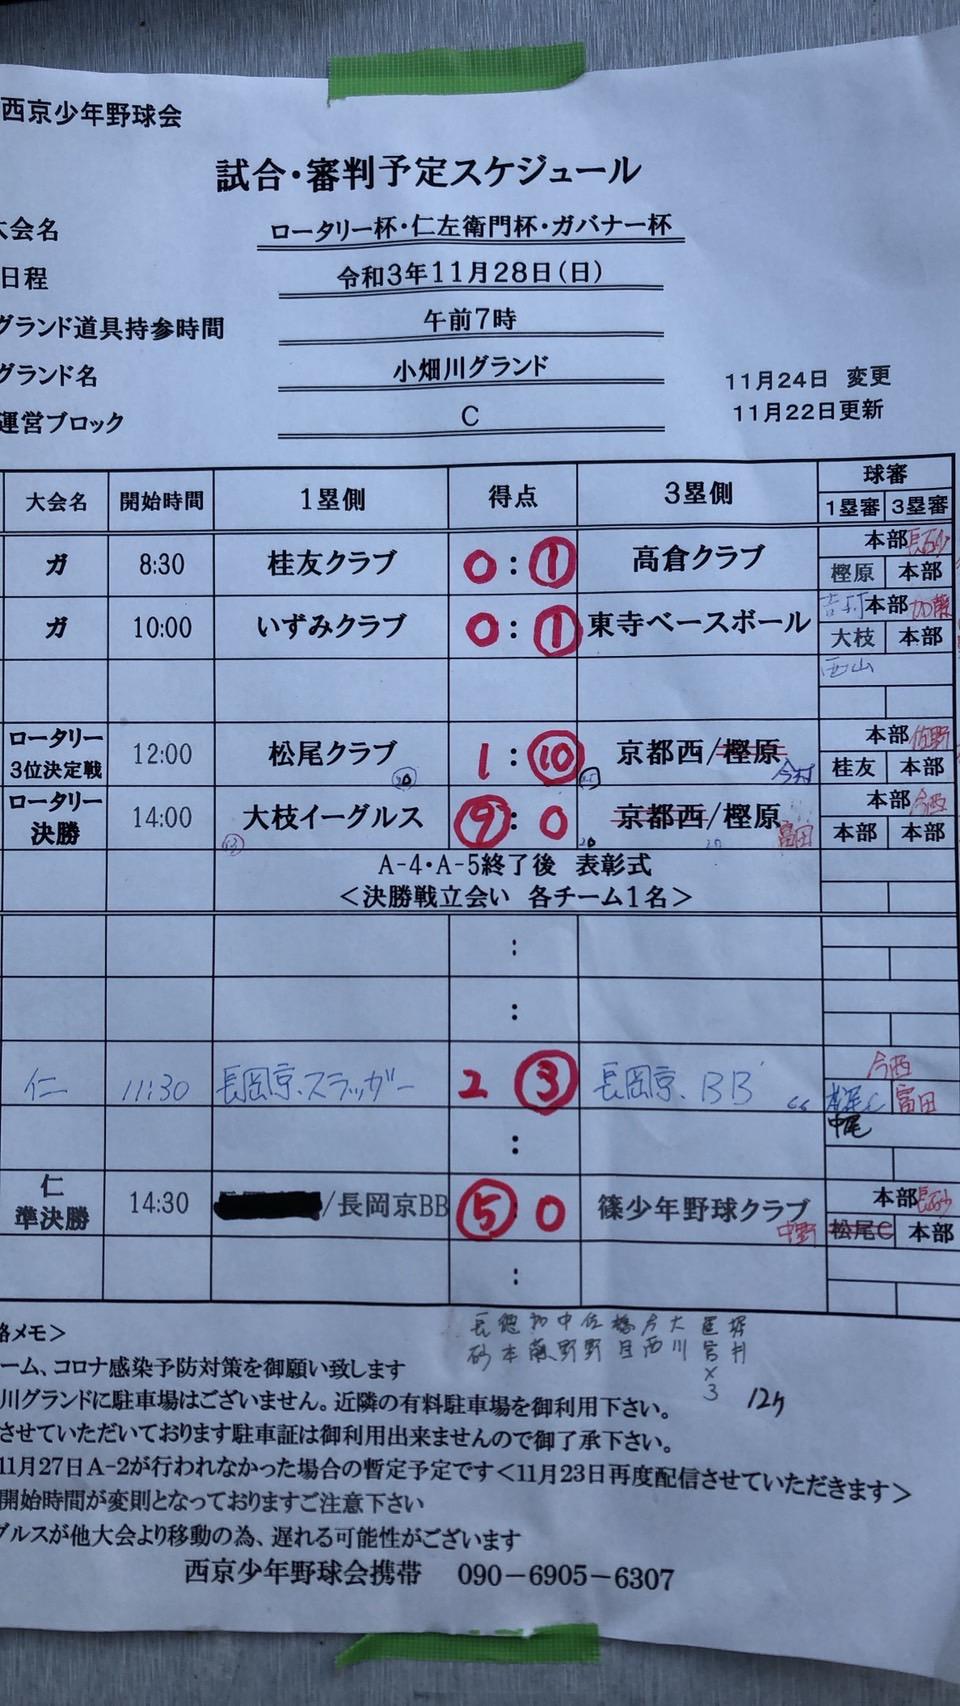 西京少年野球会
試合・審判予定スケジュール
大会名 ロータリー杯・仁左衛門杯・ガバナー杯
日程 令和3年11月28日(日)
グランド道具持参時間 午前7時
グランド名 小畑川グランド
11月24日 変更
運営ブロック C
11月22日更新
大会名 開始時間 1塁側 得点 3塁側 球審
1塁審 3塁審
ガ 8:30 桂友クラブ 0:① 高倉クラブ 本部 長砂
樫原 本部
ガ 10:00 いずみクラブ 0:① 東寺ベースボール 本部 加藤
大枝 本部
西山
ロータリー 3位決定戦 12:00 松尾クラブ 1:⑩ 京都西/樫原 今村 本部 佐野
桂友 本部
ロータリー 決勝 14:00 大枝イーグルス ⑨:0 京都西/樫原 富田 本部 今西
本部 本部
A-4・A-5終了後 表彰式
<決勝戦立会い 各チーム1名>
:
:
仁 11:30 長岡京スラッガー 2 ③ 長岡京BB 今西
富田
中尾
:
仁 準決勝 14:30 /長岡京BB ⑤ 0 篠少年野球クラブ 中野 本部 長砂
松尾C 本部
:
メモ>
ーム、コロナ感染予防対策を御願い致します
川グランドに駐車場はございません。近隣の有料駐車場を御利用下さい。
させていただいております駐車証は御利用出来ませんので御了承下さい。
11月27日A-2が行われなかった場合の暫定予定です<11月23日再度配信させていただきます>
開始時間が変則となっておりますご注意下さい
グルスが他大会より移動の為、遅れる可能性がございます
西京少年野球会携帯 090-6905-6307